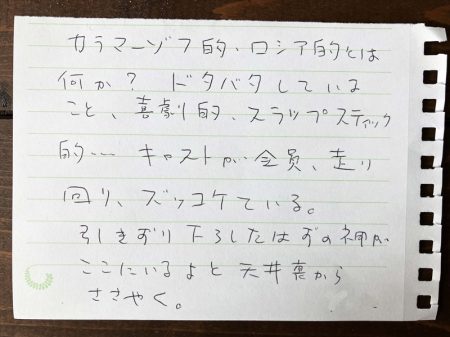 カラマーゾフ的、ロシア的とは
何か？ ドタバタしている
こと、喜劇的、スラップスティック
的… キャストが全員、走り
回り、ズッコケている。
引きずり下ろしたはずの神が
ここにいるよと天井裏から
ささやく。